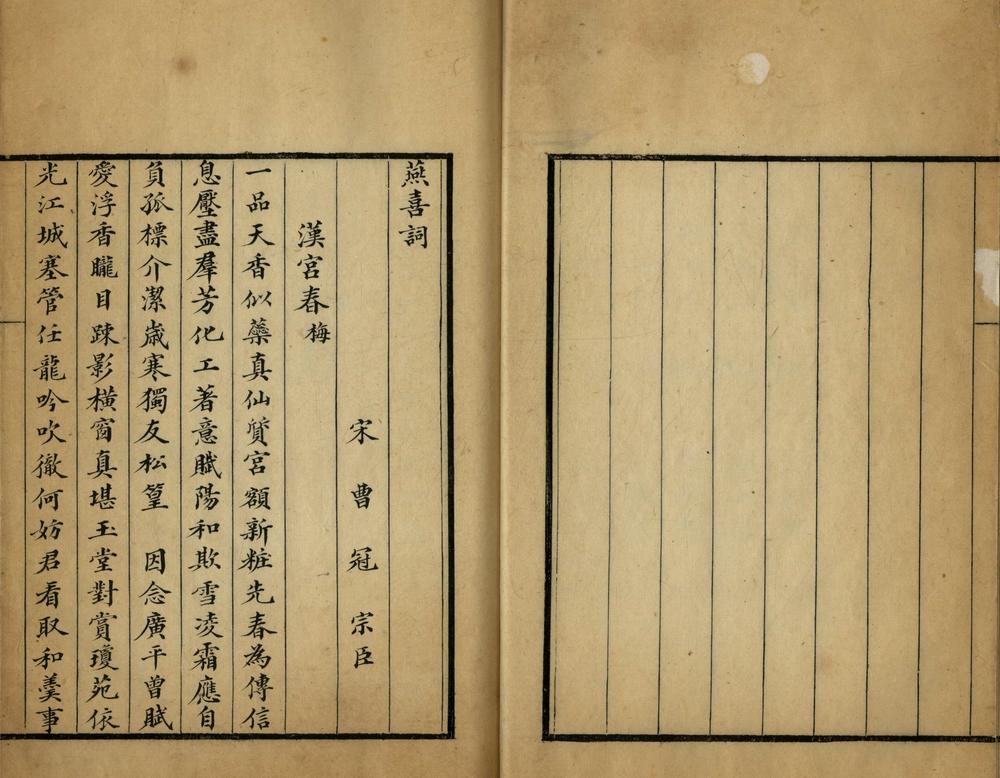 燕喜詞
宋曹冠宗臣
漢宮春梅
一品天香似蘂真仙質宮額新粧先春為傳信
息壓盡羣芳化工著意賦陽和欺雪凌霜應自
負孤標介潔歲寒獨友松篁　因念廣平曾賦
愛浮香朧目踈影橫窗真堪玉堂對賞瓊苑依
光江城塞管任龍吟吹徹何妨君看取和羹事